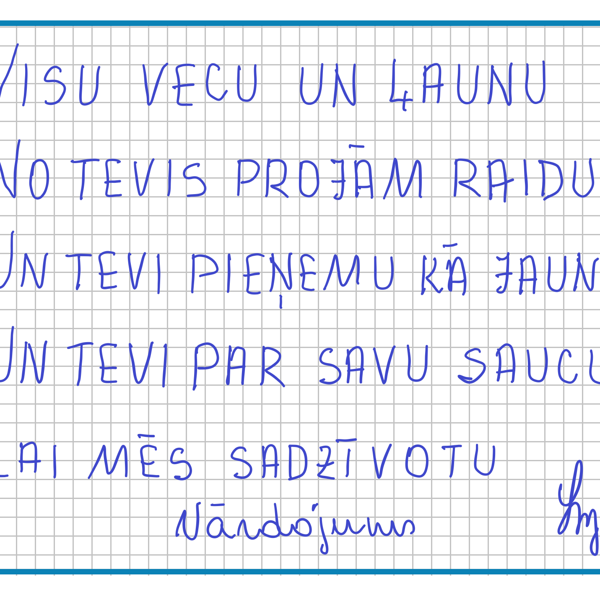 VISU VECU UN ĻAUNU
NO TEVIS PROJĀM RAIDU
UN TEVI PIEŅEMU KĀ JAUN
UN TEVI PAR SAVU SAUCU
LAI MĒS SADZĪVOTU
Vārdojums